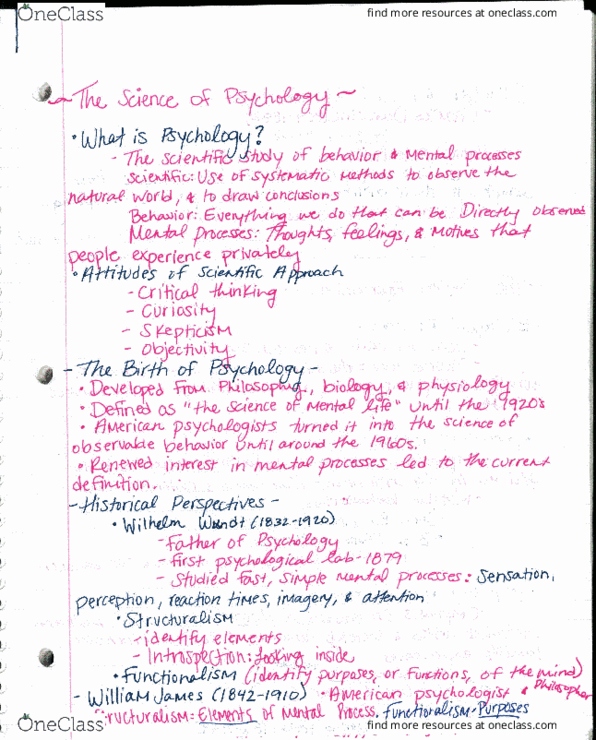 OneClass
find more resources at oneclass.com
~ The Science of Psychology ~
• What is Psychology?
- The scientific study of behavior & Mental processes
Scientific: Use of systematic methods to observe the
natural world, & to draw conclusions
Behavior: Everything we do that can be Directly observed
Mental Processes: Thoughts, feelings, & Motives that
people experience privately
• Attitudes of Scientific Approach
- Critical thinking
- Curiosity
- Skepticism
- Objectivity
- The Birth of Psychology -
• Developed from Philosophy, biology, & physiology
• Defined as "the science of Mental life" until the 1920s
• American psychologists turned it into the science of
observable behavior until around the 1960s.
• Renewed interest in mental processes led to the current
definition.
- Historical Perspectives -
• Wilhelm Wundt (1832-1920)
- Father of Psychology
- First psychological lab - 1879
- Studied fast, simple mental processes: Sensation,
perception, reaction times, imagery, & attention
• Structuralism
- identify elements
- Introspection: looking inside
• Functionalism (identify purposes, or functions, of the mind)
- William James (1842-1910) • American psychologist & Philosopher
Structuralism: Elements of Mental Process. Functionalism - Purposes
OneClass
find more resources at oneclass.com